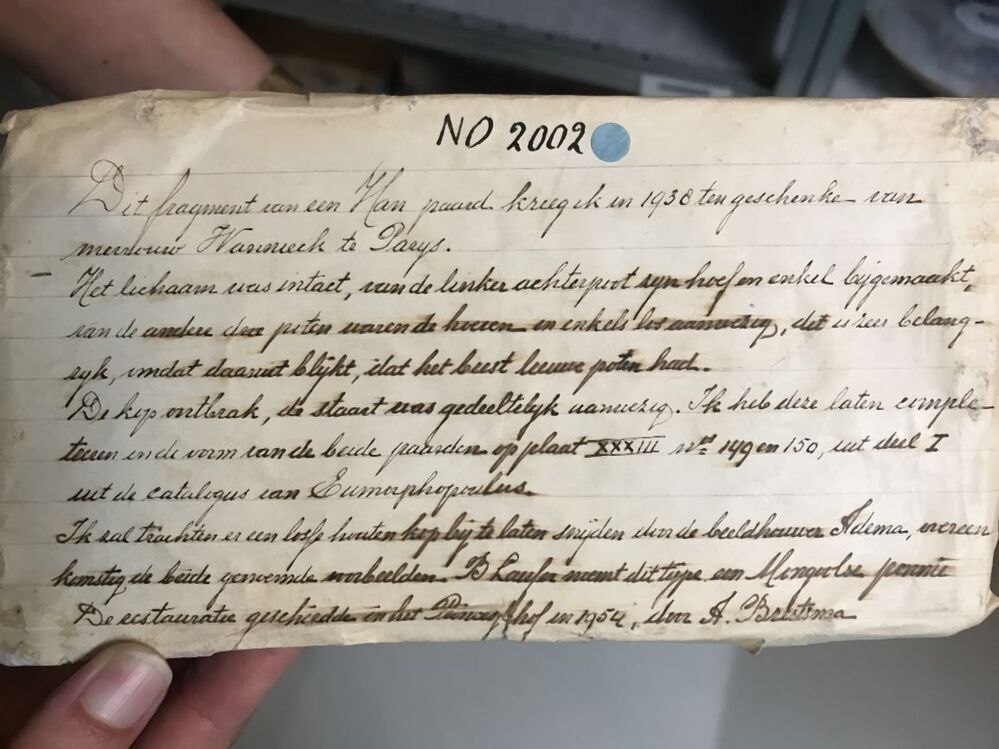 NO 2002
Dit fragment van een Han paard kreeg ik in 1938 ten geschenke van
mevrouw Wannieck te Parys.
Het lichaam was intact, van de linker achterpoot zyn hoef en enkel bijgemaakt,
van de andere drie poten waren de hoeven en enkels los aanwezig, dit is zeer belang-
ryk, omdat daaruit blijkt, dat het beest leeuwepoten had.
De kop ontbrak, de staart was gedeeltelyk aanwezig. Ik heb deze laten comple-
teeren in de vorm van de beide paarden op plaat XXXIII nrs 149 en 150, uit deel I
uit de catalogus van Eumorphopoulus.
Ik zal trachten er een losse houten kop bij te laten snijden door de beeldhouwer Adema, overeen
komstig de beide genoemde voorbeelden. B Laufer noemt dit type een Mongoolse pennie
De restauratie geschiedde in het Princessehof in 1954, door A. Breetsma